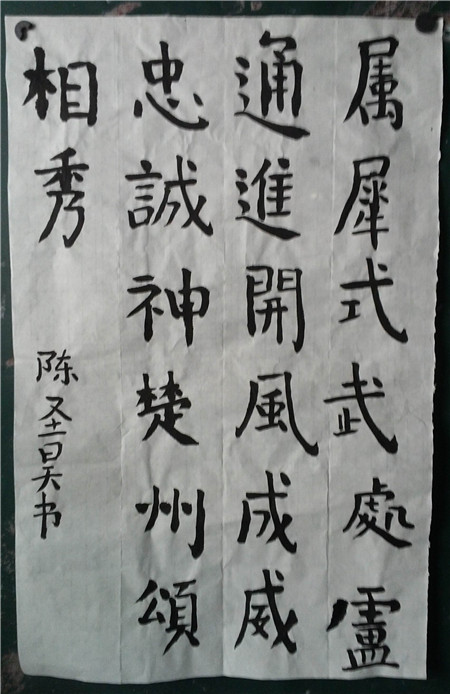 属犀式武處盧
通進開風成威
忠誠神楚州頌
相秀
陈圣昊书